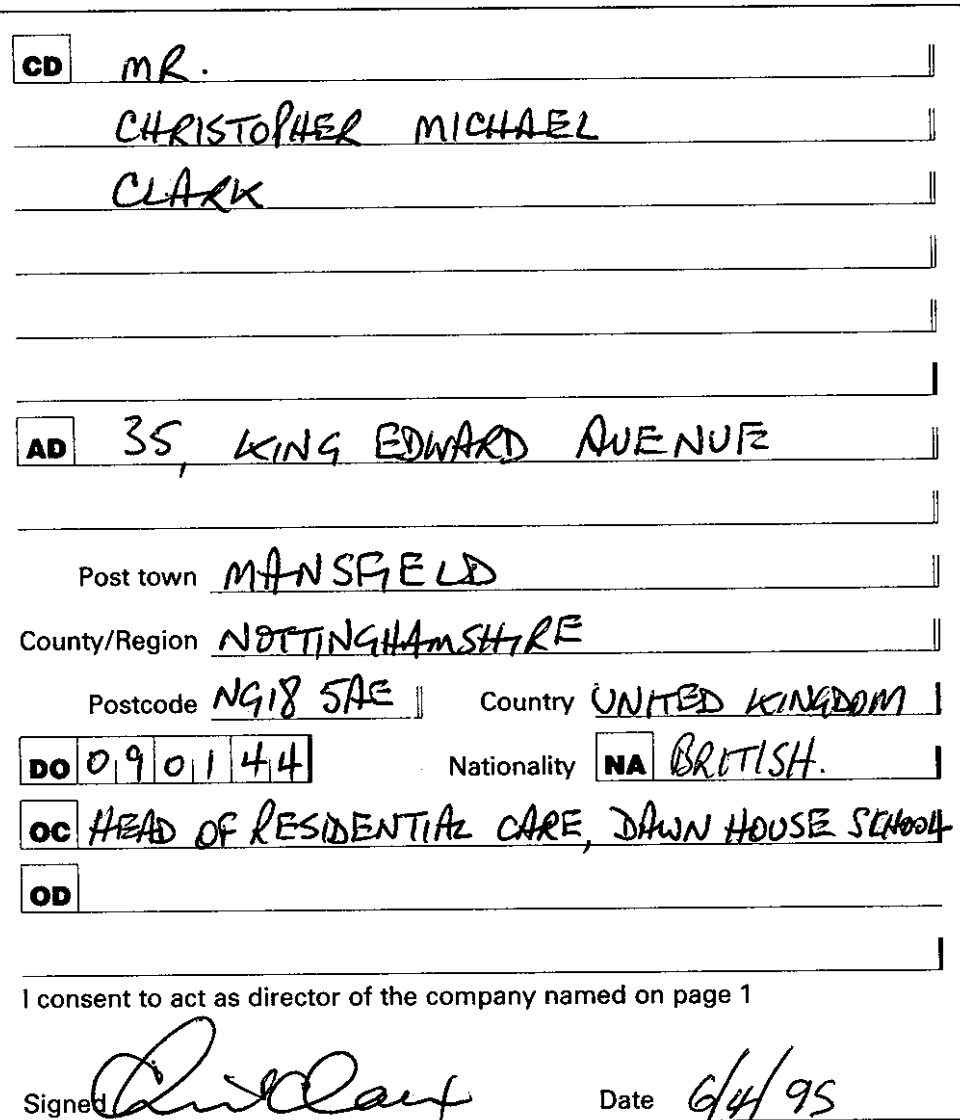 CD MR.
CHRISTOPHER MICHAEL
CLARK
AD 35, KING EDWARD AVENUE
Post town MANSFIELD
County/Region NOTTINGHAMSHIRE
Postcode NG18 5AE Country UNITED KINGDOM
DO 090144 Nationality NA BRITISH.
OC HEAD OF RESIDENTIAL CARE, DAWN HOUSE SCHOOL
OD
I consent to act as director of the company named on page 1
Signed Date 6/4/95